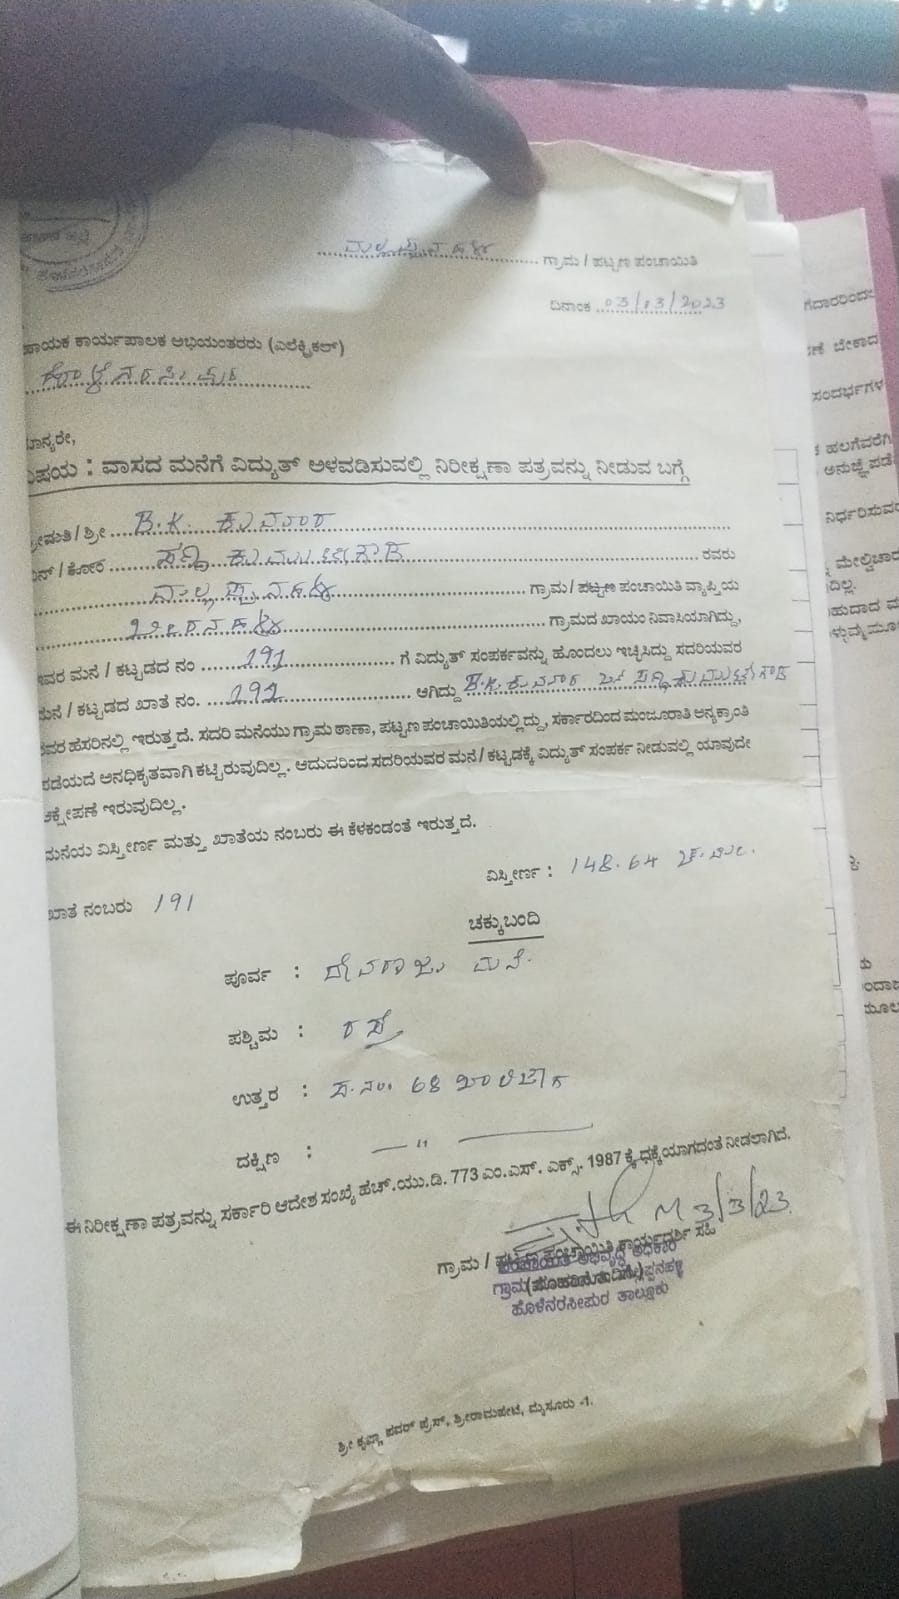 acer
ಮಲ್ಲಪ್ಪನಹಳ್ಳಿ ಗ್ರಾಮ / ಪಟ್ಟಣ ಪಂಚಾಯಿತಿ
ದಿನಾಂಕ 03/03/2023
ಹಾಯಕ ಕಾರ್ಯಪಾಲಕ ಅಭಿಯಂತರರು (ಎಲೆಕ್ಟ್ರಿಕಲ್)
ಹೊಳೆನರಸೀಪುರ
ಮಾನ್ಯರೇ,
ವಿಷಯ : ವಾಸದ ಮನೆಗೆ ವಿದ್ಯುತ್ ಅಳವಡಿಸುವಲ್ಲಿ ನಿರೀಕ್ಷಣಾ ಪತ್ರವನ್ನು ನೀಡುವ ಬಗ್ಗೆ
ಶ್ರೀಮತಿ / ಶ್ರೀ B.K. ಕುಮಾರ
ಬಿನ್ / ಕೋಂ ಸಣ್ಣ ರವರು
ಮಲ್ಲಪ್ಪನಹಳ್ಳಿ ಗ್ರಾಮ / ಪಟ್ಟಣ ಪಂಚಾಯಿತಿ ವ್ಯಾಪ್ತಿಯ
ಗ್ರಾಮದ ಖಾಯಂ ನಿವಾಸಿಯಾಗಿದ್ದು,
ಇವರ ಮನೆ / ಕಟ್ಟಡದ ನಂ 191 ಗೆ ವಿದ್ಯುತ್ ಸಂಪರ್ಕವನ್ನು ಹೊಂದಲು ಇಚ್ಛಿಸಿದ್ದು ಸದರಿಯವರ
ಮನೆ / ಕಟ್ಟಡದ ಖಾತೆ ನಂ. 191 ಆಗಿದ್ದು B.K. ಕುಮಾರ ಬಿನ್ ಸಣ್ಣ
ರವರ ಹೆಸರಿನಲ್ಲಿ ಇರುತ್ತದೆ. ಸದರಿ ಮನೆಯು ಗ್ರಾಮ ಠಾಣಾ, ಪಟ್ಟಣ ಪಂಚಾಯಿತಿಯಲ್ಲಿದ್ದು, ಸರ್ಕಾರದಿಂದ ಮಂಜೂರಾತಿ ಅನ್ಯಕ್ರಾಂತಿ
ಪಡೆಯದೆ ಅನಧಿಕೃತವಾಗಿ ಕಟ್ಟಿರುವುದಿಲ್ಲ. ಆದುದರಿಂದ ಸದರಿಯವರ ಮನೆ / ಕಟ್ಟಡಕ್ಕೆ ವಿದ್ಯುತ್ ಸಂಪರ್ಕ ನೀಡುವಲ್ಲಿ ಯಾವುದೇ
ಆಕ್ಷೇಪಣೆ ಇರುವುದಿಲ್ಲ.
ಮನೆಯ ವಿಸ್ತೀರ್ಣ ಮತ್ತು ಖಾತೆಯ ನಂಬರು ಈ ಕೆಳಕಂಡಂತೆ ಇರುತ್ತದೆ.
ಖಾತೆ ನಂಬರು 191 ವಿಸ್ತೀರ್ಣ : 148.64 ಚ.ಮೀ.
ಚಕ್ಕುಬಂದಿ
ಪೂರ್ವ : ದೇವರಾಜು ಮನೆ.
ಪಶ್ಚಿಮ : ರಸ್ತೆ
ಉತ್ತರ : ಸ.ನಂ. 68
ದಕ್ಷಿಣ : — " —
ಈ ನಿರೀಕ್ಷಣಾ ಪತ್ರವನ್ನು ಸರ್ಕಾರಿ ಆದೇಶ ಸಂಖ್ಯೆ ಹೆಚ್.ಯು.ಡಿ. 773 ಎಂ.ಎಸ್. ಎಕ್ಸ್. 1987 ಕ್ಕೆ ಧಕ್ಕೆಯಾಗದಂತೆ ನೀಡಲಾಗಿದೆ.
3/3/23.
ಗ್ರಾಮ / ಪಟ್ಟಣ ಪಂಚಾಯಿತಿ ಕಾರ್ಯದರ್ಶಿ ಸಹಿ
ಪಂಚಾಯಿತಿ ಅಭಿವೃದ್ಧಿ ಅಧಿಕಾರಿ
(ಮೊಹರಿನೊಂದಿಗೆ)
ಹೊಳೆನರಸೀಪುರ ತಾಲ್ಲೂಕು
ಶ್ರೀ ಕೃಷ್ಣಾ ಪವರ್ ಪ್ರೆಸ್, ಶ್ರೀರಾಮಪೇಟೆ, ಮೈಸೂರು -1.